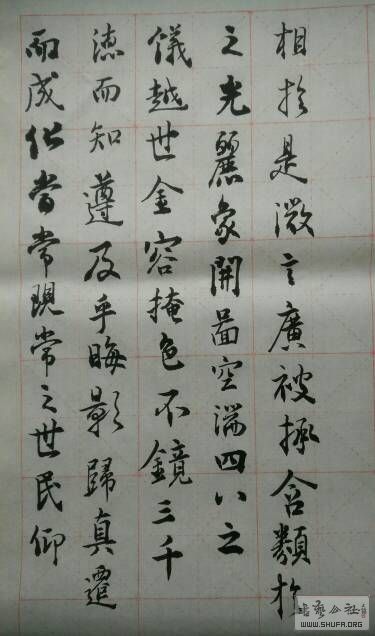 相於是微言廣被拯含類於
之光麗象開啚空端四八之
儀越世金容掩色不鏡三千
德而知遵及乎晦影歸真遷
而成化當常現常之世民仰
书艺公社
WWW.SHUFA.ORG